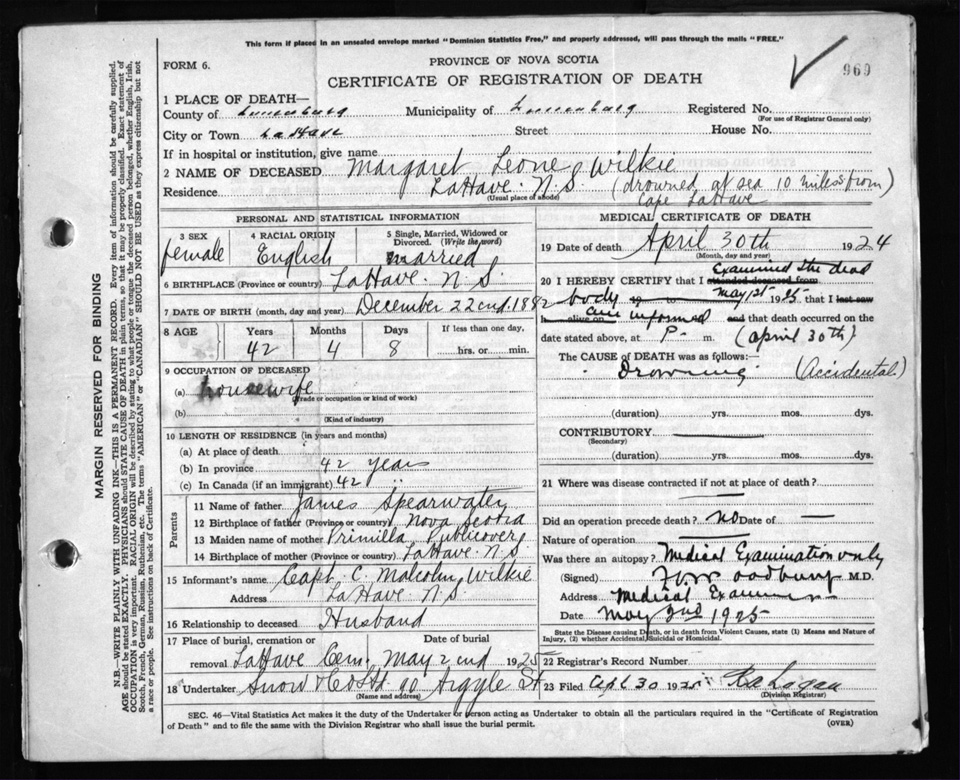 This form if placed in an unsealed envelope marked "Dominion Statistics Free," and properly addressed, will pass through the mails "FREE."
FORM 6.
PROVINCE OF NOVA SCOTIA
969
CERTIFICATE OF REGISTRATION OF DEATH
1 PLACE OF DEATH—
County of Lunenburg Municipality of Lunenburg Registered No.
(For use of Registrar General only)
City or Town LaHave Street House No.
If in hospital or institution, give name
2 NAME OF DECEASED Margaret Leone Wilkie
Residence LaHave. N.S. (drowned at sea 10 miles from Cape LaHave)
(Usual place of abode)
PERSONAL AND STATISTICAL INFORMATION
3 SEX 4 RACIAL ORIGIN 5 Single, Married, Widowed or Divorced. (Write the word)
female English married
6 BIRTHPLACE (Province or country) LaHave. N. S.
7 DATE OF BIRTH (month, day and year) December 22cnd. 1882
8 AGE Years Months Days If less than one day,
42 4 8 hrs. or min.
9 OCCUPATION OF DECEASED
(a) housewife
(Trade or occupation or kind of work)
(b)
(Kind of industry)
10 LENGTH OF RESIDENCE (in years and months)
(a) At place of death
(b) In province 42 years
(c) In Canada (if an immigrant) 42 "
Parents
11 Name of father James Spearwater
12 Birthplace of father (Province or country) Nova Scotia
13 Maiden name of mother Primilla Publicover
14 Birthplace of mother (Province or country) LaHave. N.S.
15 Informant's name Capt C. Malcolm Wilkie
Address LaHave. N.S.
16 Relationship to deceased Husband
17 Place of burial, cremation or removal Date of burial
LaHave Cem. May 2cnd 1925
18 Undertaker Snow & Co Ltd 90 Argyle St
(Name and address)
MEDICAL CERTIFICATE OF DEATH
19 Date of death April 30th 1924
(Month, day and year)
Examined the dead
20 I HEREBY CERTIFY that I attended deceased from
body 19 to May 1st 1925, that I last saw
h alive on am informed and that death occurred on
date stated above, at P- m. (April 30th)
The CAUSE OF DEATH was as follows:—
Drowning (Accidental)
(duration) yrs. mos. dys.
CONTRIBUTORY
(Secondary)
(duration) yrs. mos. dys.
21 Where was disease contracted if not at place of death?
Did an operation precede death? no Date of —
Nature of operation —
Was there an autopsy? Medical Examination only
(Signed) M.D.
Address Medical Examiner
Date May 2nd 1925
State the Disease causing Death, or in death from Violent Causes, state (1) Means and Nature of Injury, (2) whether Accidental, Suicidal or Homicidal.
22 Registrar's Record Number
23 Filed Apl 30 1925 Logan
(Division Registrar)
SEC. 46—Vital Statistics Act makes it the duty of the Undertaker or person acting as Undertaker to obtain all the particulars required in the "Certificate of Registration
of Death" and to file the same with the Division Registrar who shall issue the burial permit. (OVER)
MARGIN RESERVED FOR BINDING
N.B.—WRITE PLAINLY WITH UNFADING INK—THIS IS A PERMANENT RECORD. Every item of information should be carefully supplied.
AGE should be stated EXACTLY. PHYSICIANS should STATE CAUSE OF DEATH in plain terms, so that it may be properly classified. Exact statement of
OCCUPATION is very important. RACIAL ORIGIN will be described by stating to what people or tongue the deceased person belonged, whether English, Irish,
Scotch, French, German, Russian, Ruthenian, etc. The terms "AMERICAN" or "CANADIAN" SHOULD NOT BE USED as they express citizenship but not
a race or people. See instructions on back of Certificate.